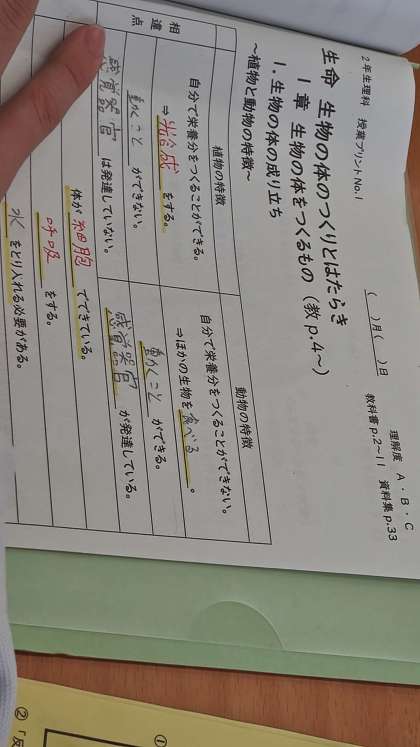 2年生理科　授業プリントNo.1
理解度　A・B・C
(　)月(　)日　教科書p.2~11　資料集p.33
生命　生物の体のつくりとはたらき
1章　生物の体をつくるもの（教p.4~）
1．生物の体の成り立ち
~植物と動物の特徴~
植物の特徴
動物の特徴
相違点
自分で栄養分をつくることができる。
⇒光合成をする。
自分で栄養分をつくることができない。
⇒ほかの生物を食べる。
動くことができない。
動くことができる。
感覚器官は発達していない。
感覚器官が発達している。
体が細胞でできている。
呼吸をする。
水をとり入れる必要がある。
①
②「反